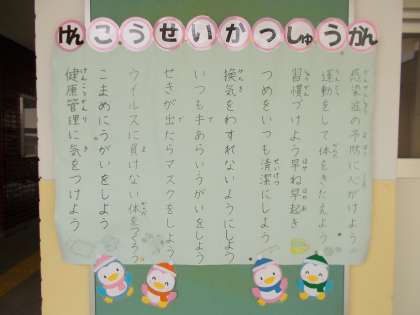 けんこうせいかつしゅうかん
感染症の予防に心がけよう
運動をして体をきたえよう
習慣づけよう早ね早起き
つめをいつも清潔にしよう
換気をわすれないようにしよう
いつも手あらいうがいをしよう
せきが出たらマスクをしよう
ウイルスに負けない体をつくろう
こまめにうがいをしよう
健康管理に気をつけよう